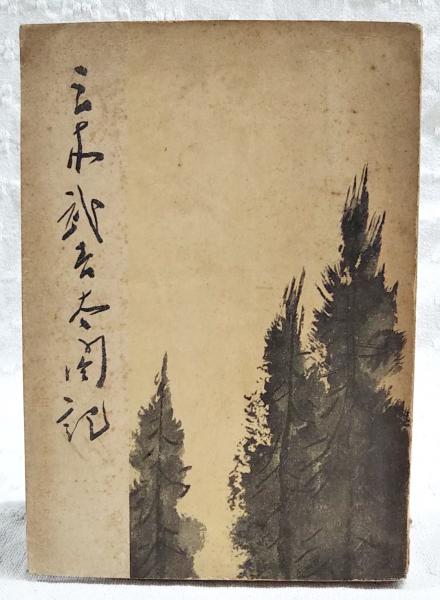 三木武吉太閤記